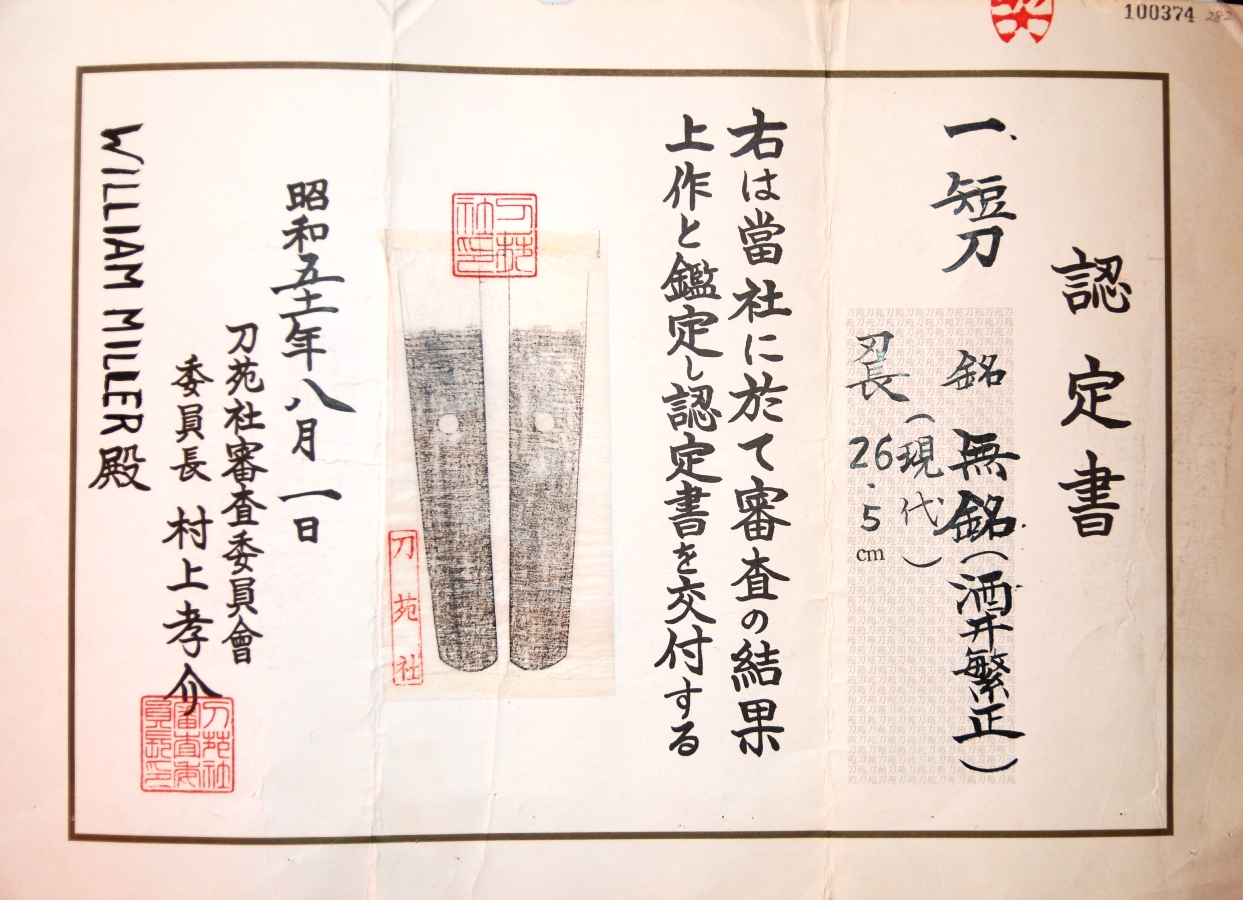 100374
282
認定書
一、短刀 銘 無銘(酒井繁正)
(現代)
刃長 26.5 cm
右は當社に於て審査の結果
上作と鑑定し認定書を交付する
刀苑社印
刀苑社
昭和五十一年八月一日
刀苑社審査委員會
委員長 村上孝介
刀苑社審査委員長印
WILLIAM MILLER 殿